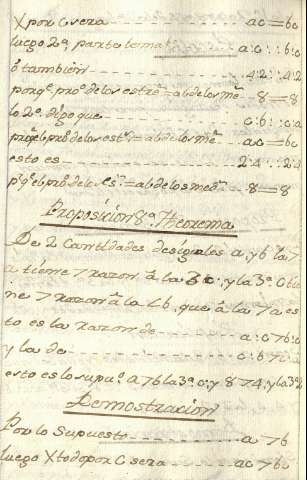 X por C sera - - - ac = bc
luego 2ª. parte tema - - - a : c : : b : c
ô tambien - - - 4 : 2 : : 4 : 2
porq.ᵉ pro.ᵒ de los estre.ˢ = al de los me.ˢ - - 8 = 8
lo 2º. digo que - - - c : b : : c : a
porq.ᵉ el pro.ᵒ de los est.ˢ = al de los me.ˢ - - ac = bc
esto es - - - 2 : 4 : : 2 : 4
p.ʳ q.ᵉ el pro.ᵒ de los es.ˢ = al de los med.ˢ - - 8 = 8
Proposicion 8ª. Theorema
De 2 Cantidades desiguales a, y b la 7
a tiene 7 razon â la 3 c : y la 3ª. c
ne 7 razon â la L b, que â la 7 a es
to es la razon de - - - a : c 7 b : c
y la de - - - c : b 7 c :
esto es lo supu.ᵒ a 7 b la 3ª. c : y 8 7 4, y la 3ª. 2
Demostracion
Por lo Supuesto - - - a 7 b
luego X todo por C sera - - - ac 7 bc